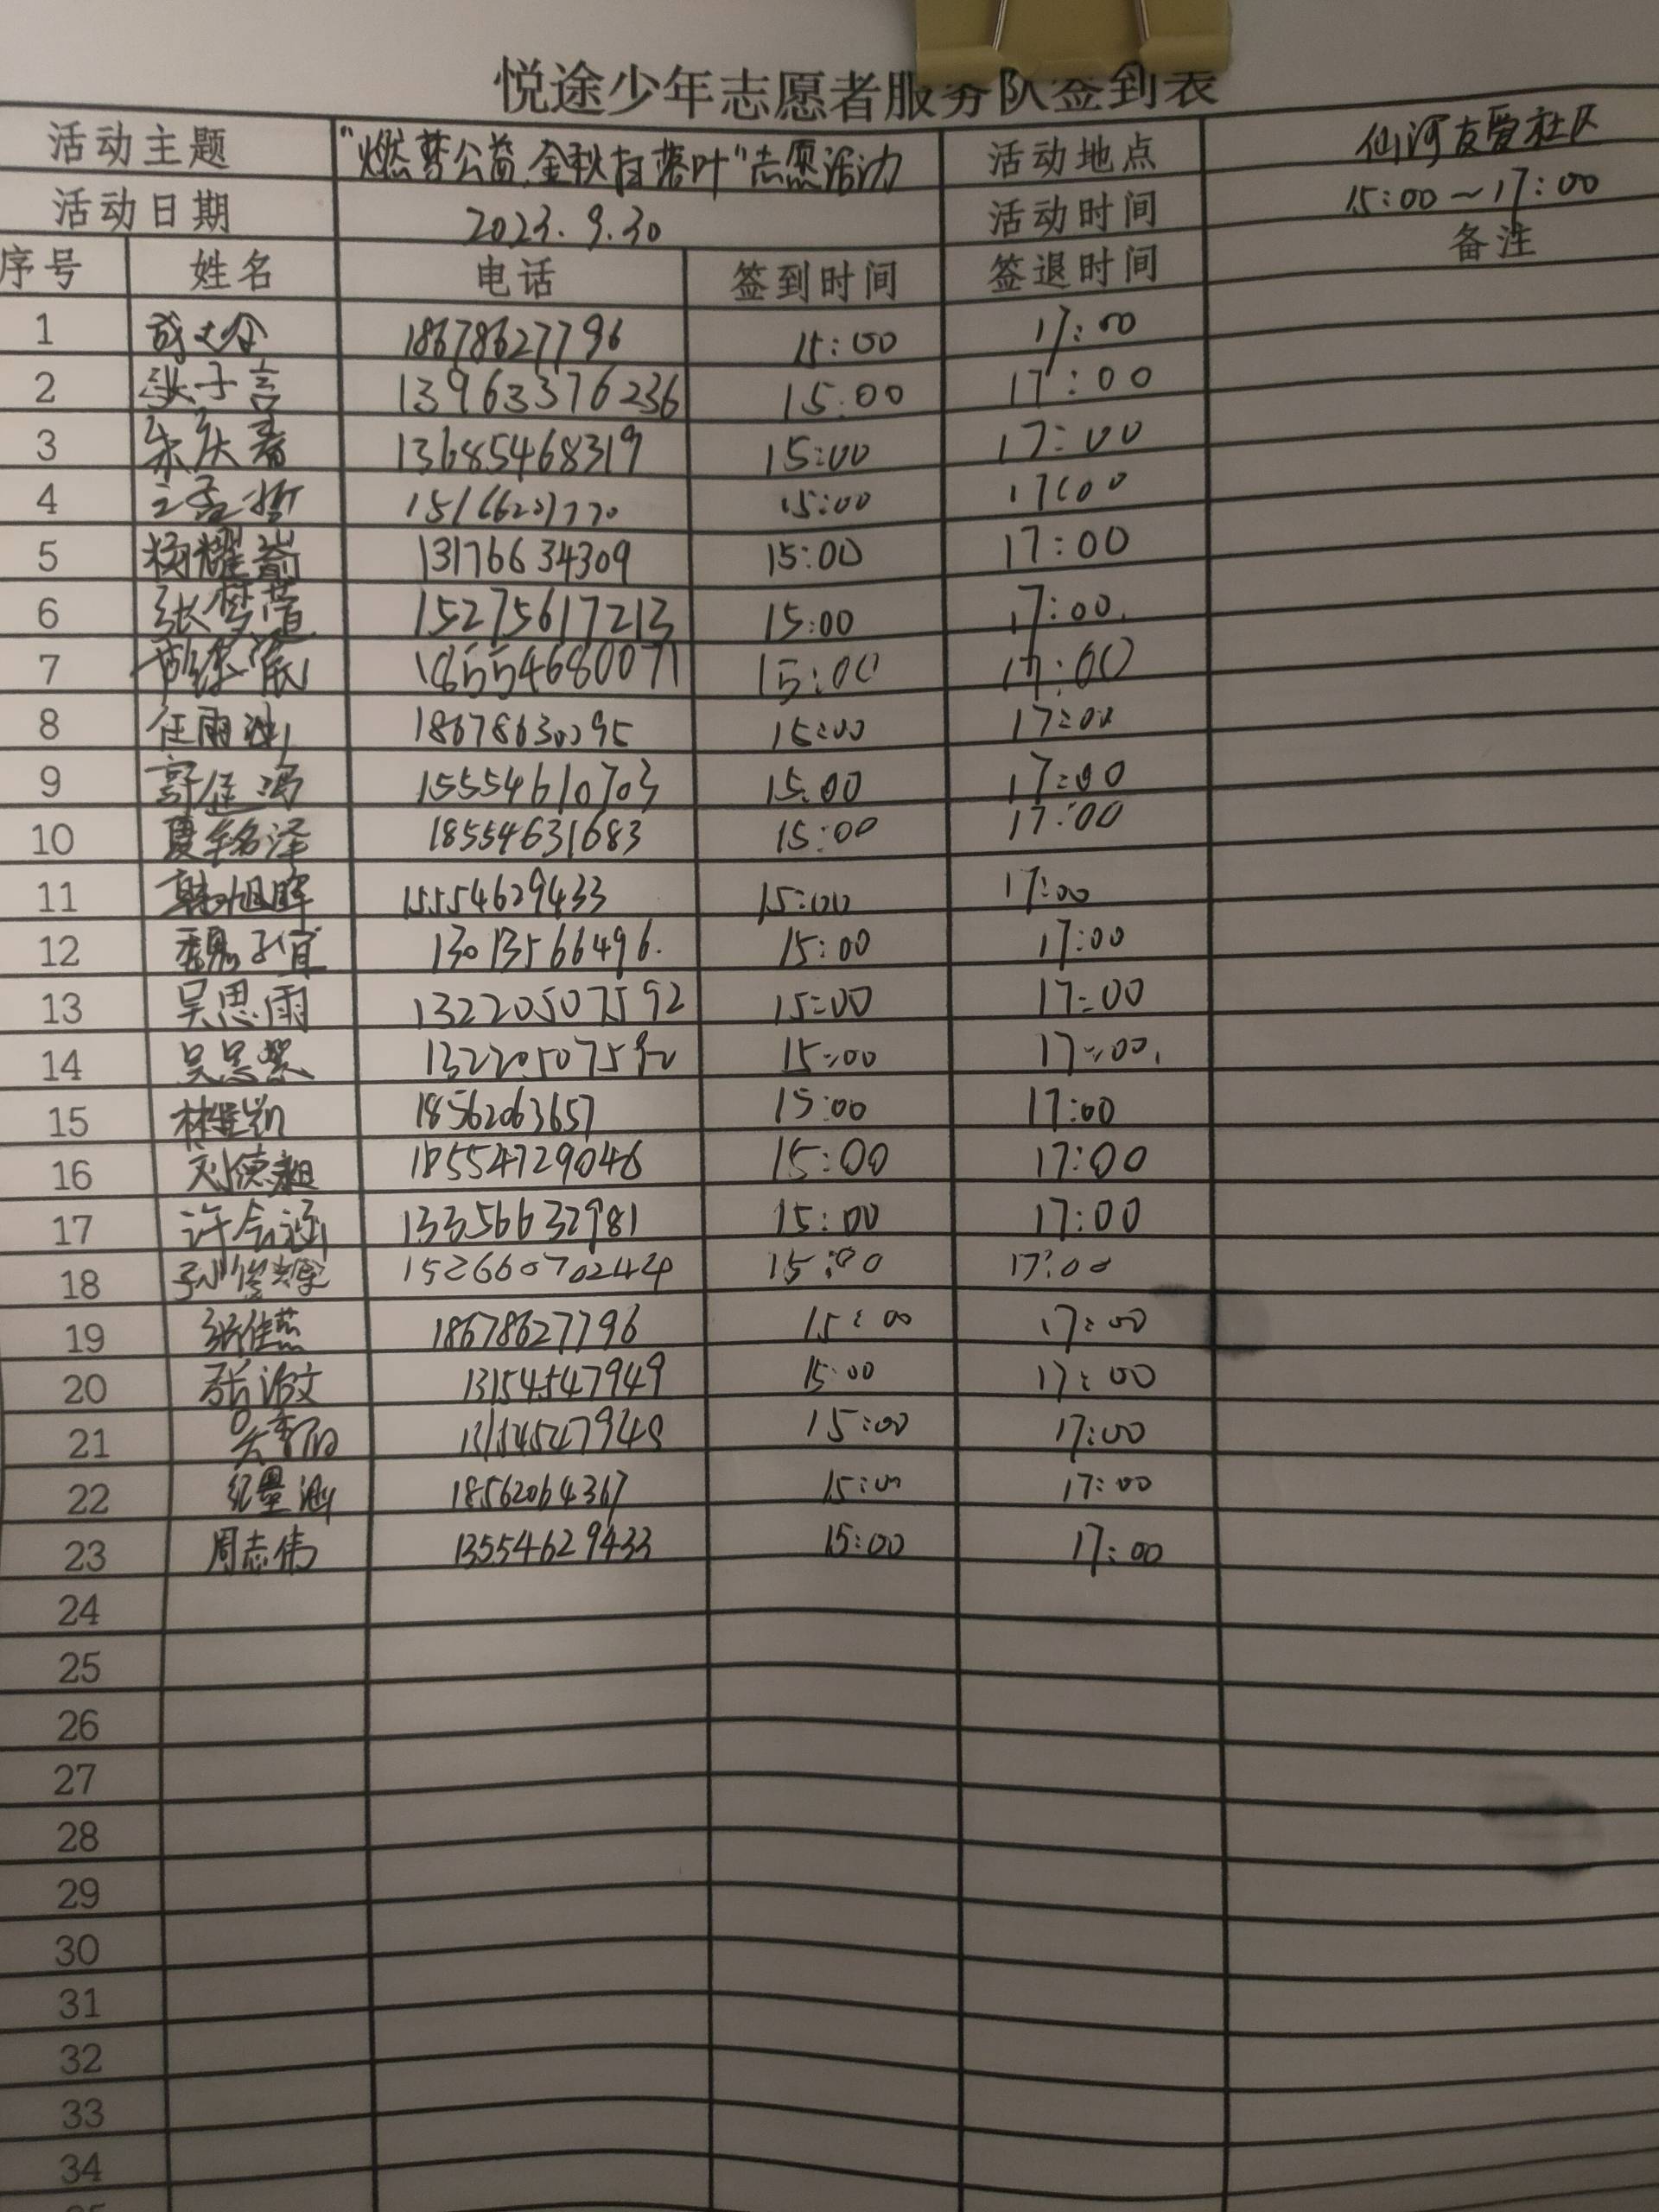 悦途少年志愿者服务队签到表
活动主题 "燃梦公益,金秋扫落叶"志愿活动 活动地点 仙河友爱社区
活动日期 2023.9.30 活动时间 15:00~17:00
序号 姓名 电话 签到时间 签退时间 备注
1 18678627796 15:00 17:00
2 张子言 13963376236 15:00 17:00
3 13685468319 15:00 17:00
4 15:00 17:00
5 杨耀嵛 13176634309 15:00 17:00
6 张梦萱 15275617213 15:00 17:00
7 18554680071 15:00 17:00
8 任雨 15:00 17:00
9 15554610703 15:00 17:00
10 夏铭泽 18554631683 15:00 17:00
11 韩旭晖 15554629433 15:00 17:00
12 魏子宜 13013566496. 15:00 17:00
13 吴思雨 13220507592 15:00 17:00
14 13220507592 15:00 17:00.
15 18562063657 15:00 17:00
16 刘德 18554729046 15:00 17:00
17 许会涵 13356632981 15:00 17:00
18 152660702444 15:00 17:00
19 张佳燕 18678627796 15:00 17:00
20 张洺文 13154547949 15:00 17:00
21 13154547949 15:00 17:00
22 纪墨涵 18562064367 15:00 17:00
23 周志伟 13554629433 15:00 17:00
24
25
26
27
28
29
30
31
32
33
34